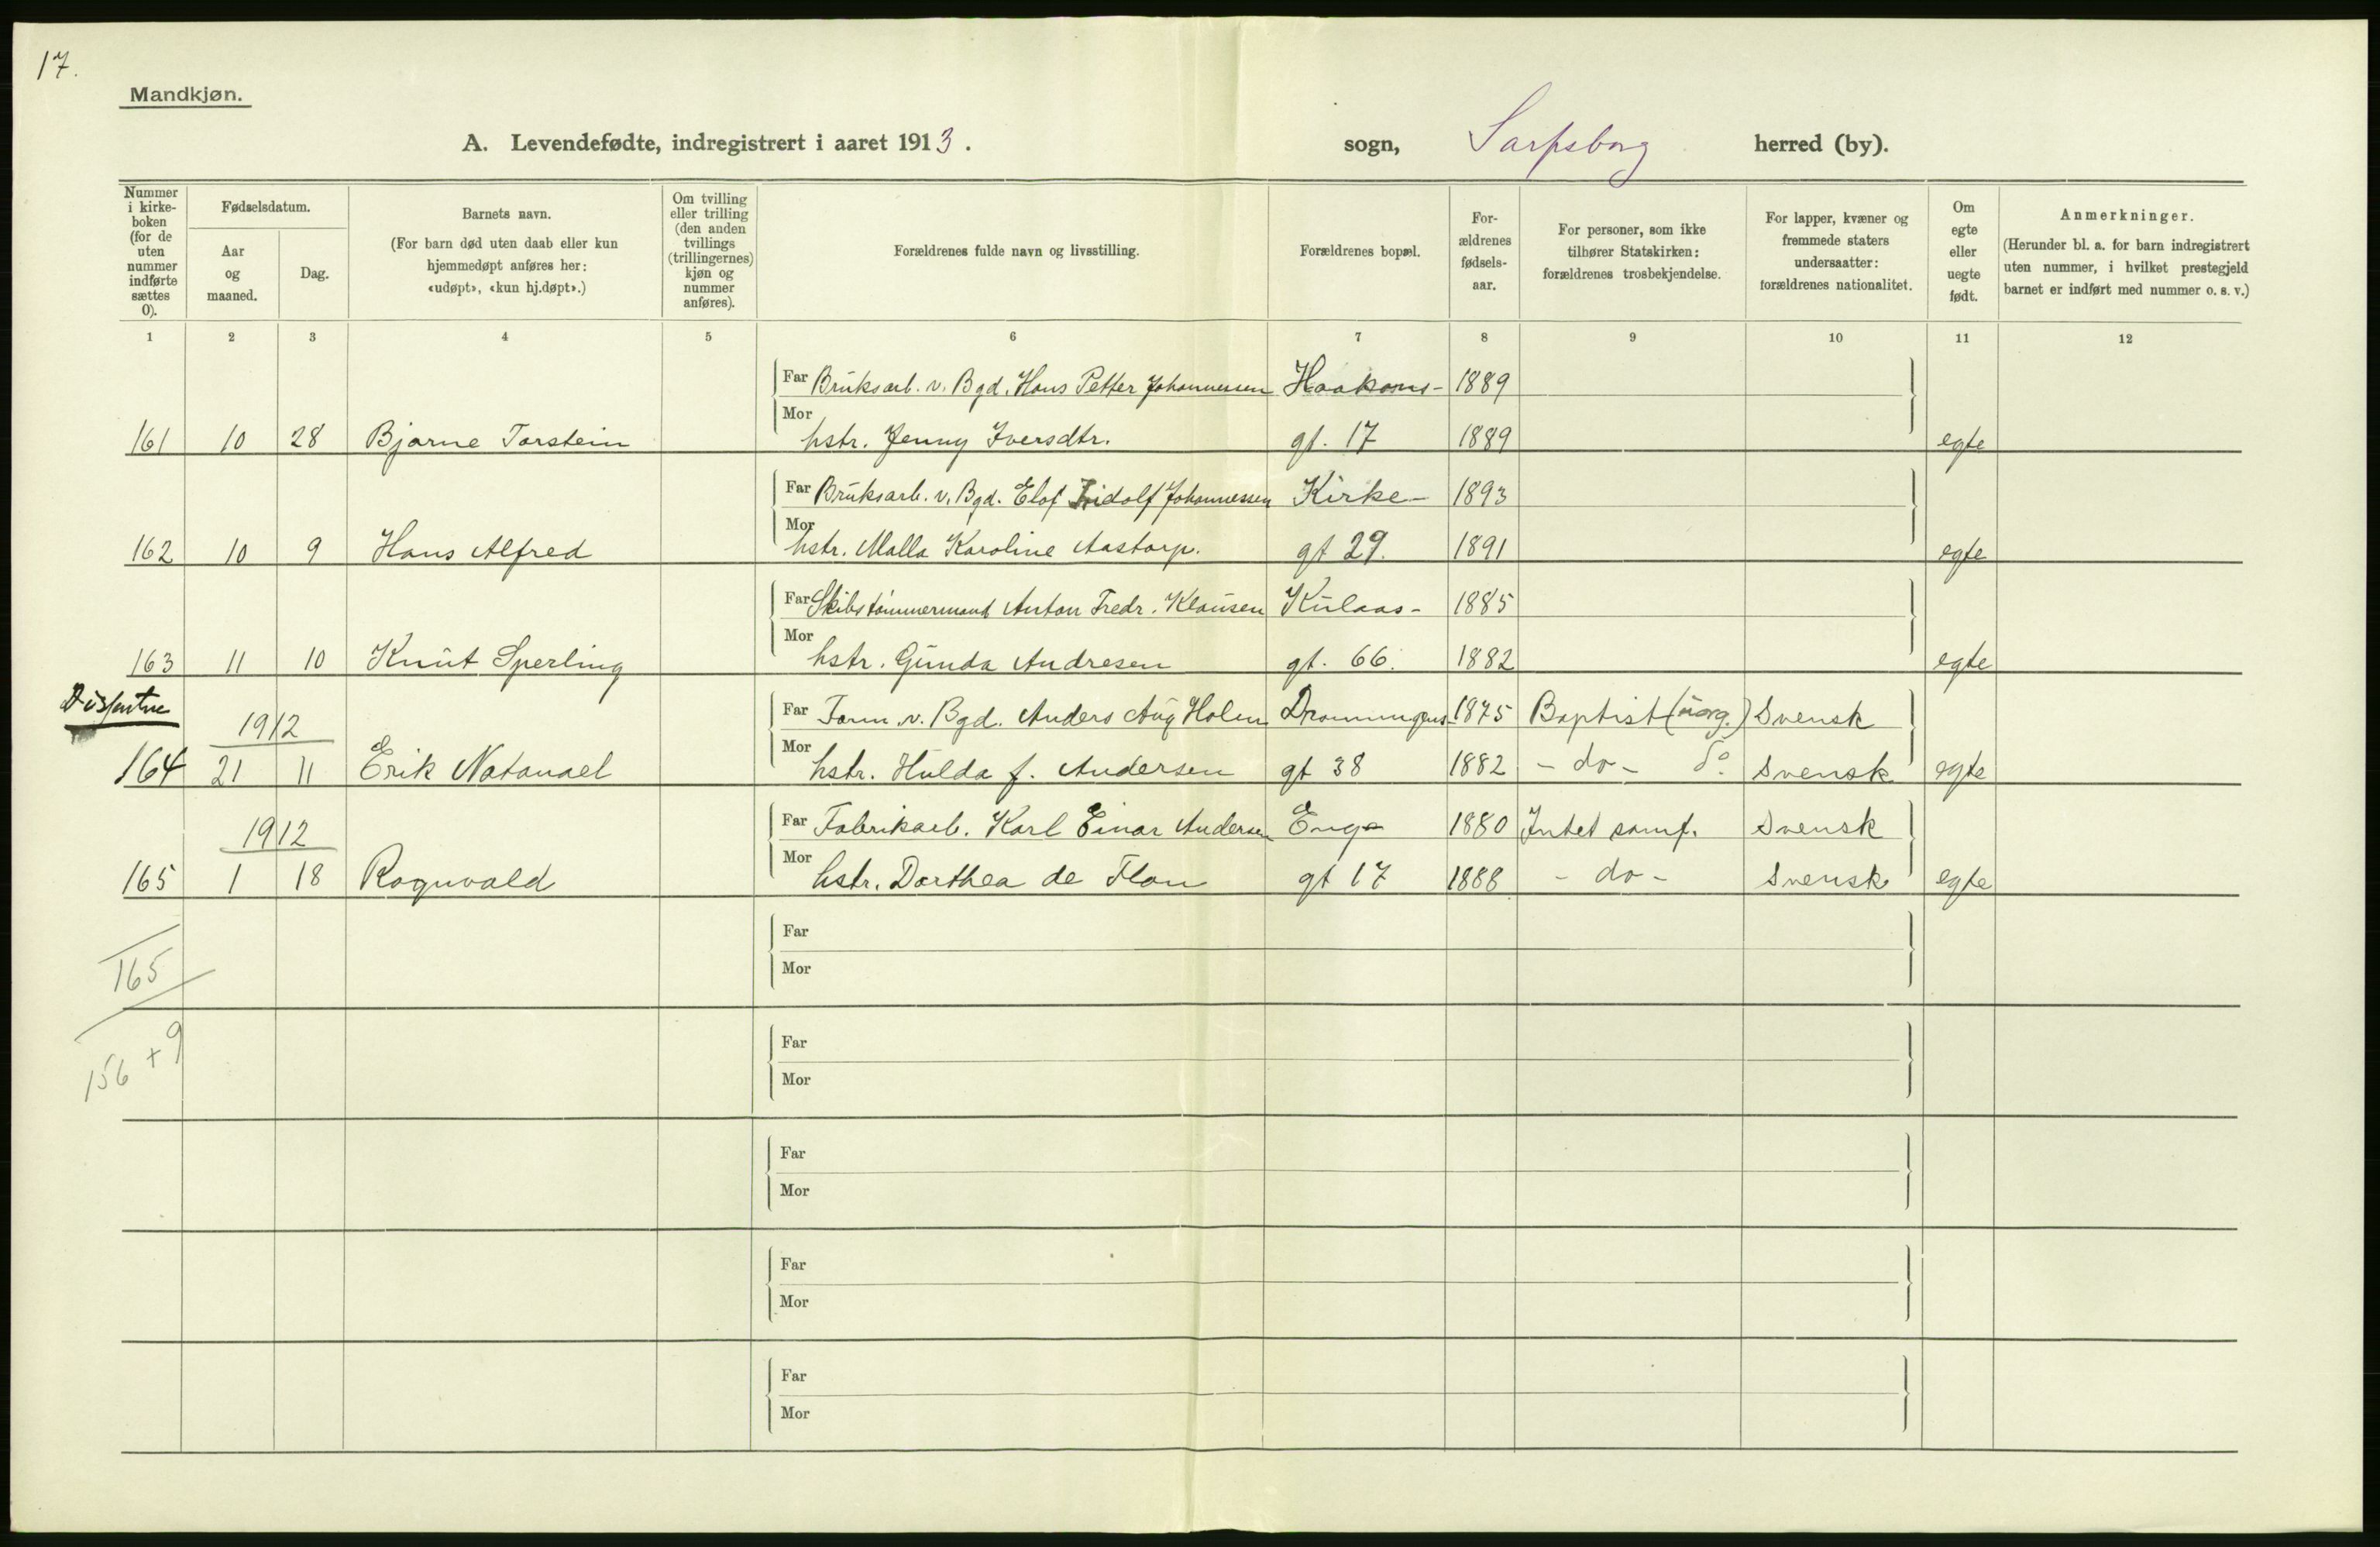 17.
Mandkjøn.
A. Levendefødte, indregistrert i aaret 1913.
sogn, Sarpsborg herred (by).
Nummer i kirke-boken (for de uten nummer indførte sættes 0).
Fødselsdatum.
Aar og maaned.
Dag.
Barnets navn.
(For barn død uten daab eller kun hjemmedøpt anføres her: «udøpt», «kun hj.døpt».)
Om tvilling eller trilling (den anden tvillings (trillingernes) kjøn og nummer anføres).
Forældrenes fulde navn og livsstilling.
Forældrenes bopæl.
For-ældrenes fødsels-aar.
For personer, som ikke tilhører Statskirken: forældrenes trosbekjendelse.
For lapper, kvæner og fremmede staters undersaatter: forældrenes nationalitet.
Om egte eller uegte født.
Anmerkninger.
(Herunder bl. a. for barn indregistrert uten nummer, i hvilket prestegjeld barnet er indført med nummer o. s. v.)
1 2 3 4 5 6 7 8 9 10 11 12
Far Bruksarb. v. Bgd. Hans Petter Johannessen Haakons- 1889
161 10 28 Bjarne Torstein Mor hstr. Jenny Iversdtr. gt. 17 1889 egte
Far Bruksarb. v. Bgd. Elof Fridolf Johannessen Kirke- 1893
162 10 9 Hans Alfred Mor hstr. Malla Karoline Aastorp. gt 29. 1891 egte
Far Skibstømmermand Anton Fredr. Klausen Kulaas- 1885
163 11 10 Knut Sperling Mor hstr. Gunda Andresen gt. 66. 1882 egte
1912 Far Form. v. Bgd. Anders Aug Holm Dronningens 1875 Baptist (uorg.) Svensk
164 21 11 Erik Natanael Mor hstr. Hulda f. Andersen gt 38 1882 - do - do Svensk egte
1912 Far Fabrikarb. Karl Einar Andersen Enge 1880 Intet samf. Svensk
165 1 18 Ragnvald Mor hstr. Dorthea de Flon gt 17 1888 - do - Svensk egte
Far
165
Mor
156 + 9
Far
Mor
Far
Mor
Far
Mor
Far
Mor